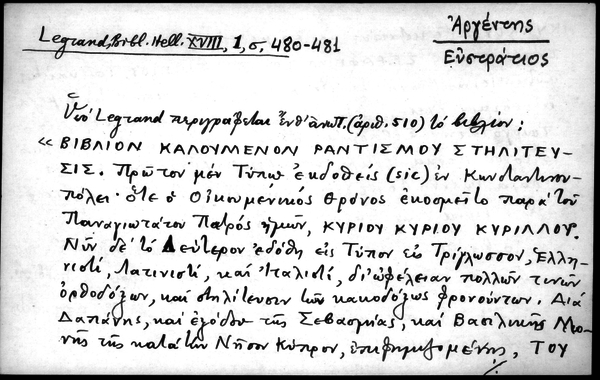 Legrand, Bibl. Hell. XVIII, 1, σ. 480-481
Ἀργέντης
Εὐστράτιος
Ὑπὸ Legrand περιγράφεται ἐνθ' ἀνωτ. (ἀριθ. 510) τὸ βιβλίον:
« ΒΙΒΛΙΟΝ ΚΑΛΟΥΜΕΝΟΝ ΡΑΝΤΙΣΜΟΥ ΣΤΗΛΙΤΕΥ-
ΣΙΣ. Πρῶτον μὲν Τύπῳ ἐκδοθεὶς (sic) ἐν Κωνσταντινου-
πόλει· ὅτε ὁ Οἰκουμενικὸς Θρόνος ἐκοσμεῖτο παρὰ τοῦ
Παναγιωτάτου Πατρὸς ἡμῶν, ΚΥΡΙΟΥ ΚΥΡΙΟΥ ΚΥΡΙΛΛΟΥ.
Νῦν δὲ τὸ Δεύτερον ἐδόθη εἰς Τύπον εἰς Τρίγλωσσον, Ἑλλη-
νιστί, Λατινιστί, καὶ Ἰταλιστί, δι' ὠφέλειαν πολλῶν τινῶν
ὀρθοδόξων, καὶ στηλίτευσιν τῶν κακοδόξως φρονούντων. Διὰ
Δαπάνης, καὶ ἐξόδου τῆς Σεβασμίας, καὶ Βασιλικῆς Μο-
νῆς τῆς κατὰ τὴν Νῆσον Κύπρον, ἐπιφημιζομένης, ΤΟΥ